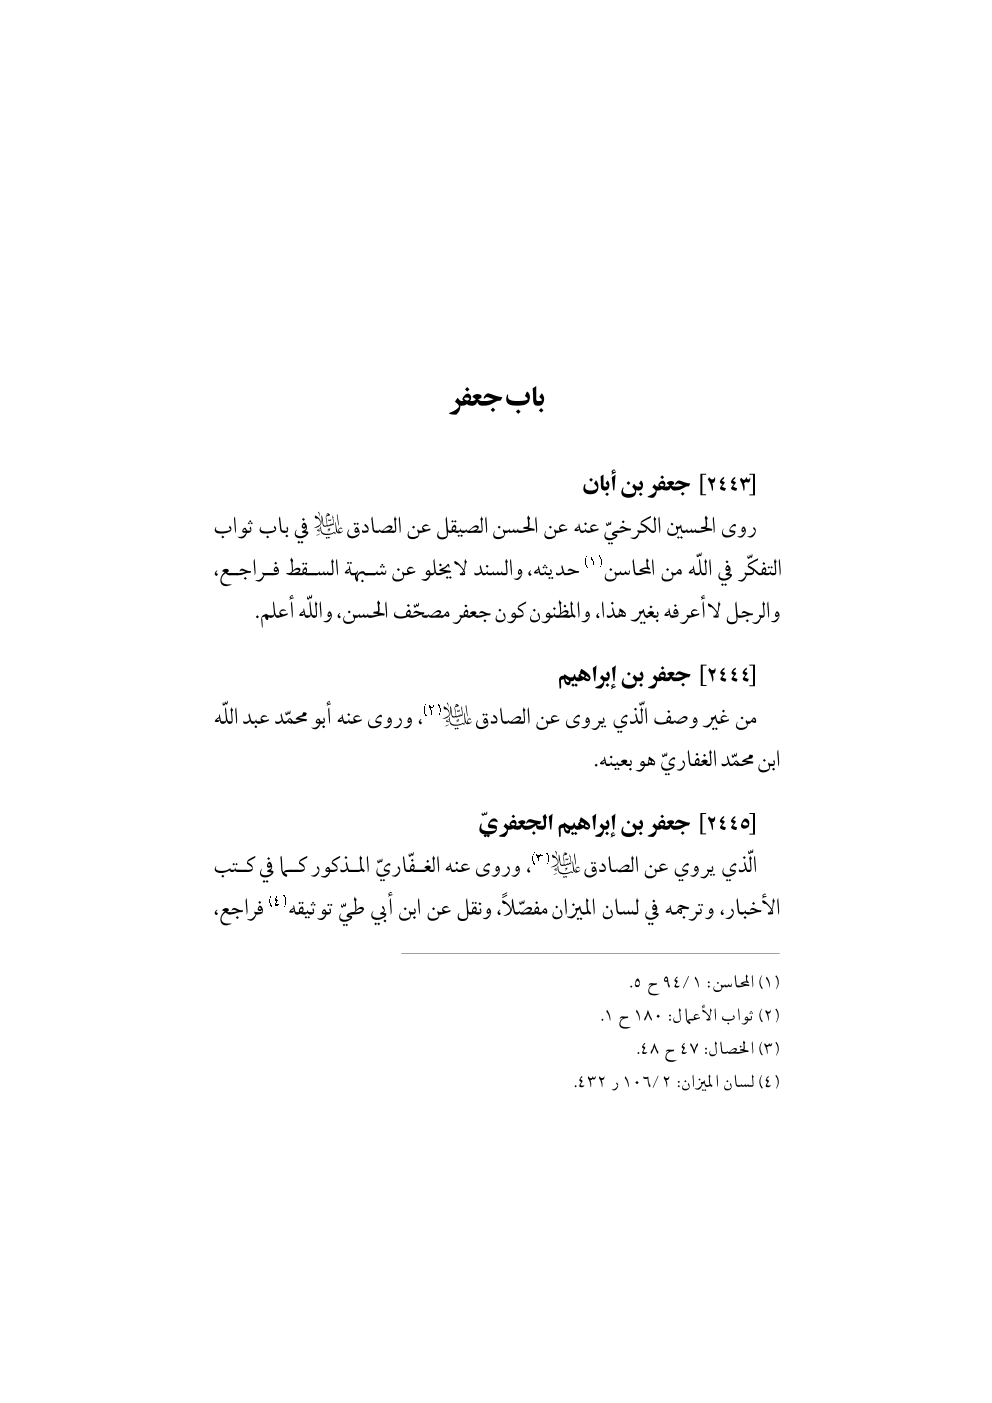 باب جعفر
[٢٤٤٣] جعفر بن أبان
روى الحسين الكرخيّ عنه عن الحسن الصيقل عن الصادق عليه السلام في باب ثواب
التفكّر في اللّه من المحاسن(١) حديثه، والسند لايخلو عن شـبهة السـقط فـراجـع،
والرجل لاأعرفه بغير هذا، والمظنون كون جعفر مصحّف الحسن، واللّه أعلم.
[٢٤٤٤] جعفر بن إبراهيم
من غير وصف الّذي يروى عن الصادق عليه السلام(٢)، وروى عنه أبو محمّد عبد اللّه
ابن محمّد الغفاريّ هو بعينه.
[٢٤٤٥] جعفر بن إبراهيم الجعفريّ
الّذي يروي عن الصادق عليه السلام(٣)، وروى عنه الغـفّاريّ المـذكور كـما في كـتب
الأخبار، وترجمه في لسان الميزان مفصّلاً، ونقل عن ابن أبي طيّ توثيقه(٤) فراجع،
(١) المحاسن: ٩٤/١ ح ٥.
(٢) ثواب الأعمال: ١٨٠ ح ١.
(٣) الخصال: ٤٧ ح ٤٨.
(٤) لسان الميزان: ١٠٦/٢ ر ٤٣٢.